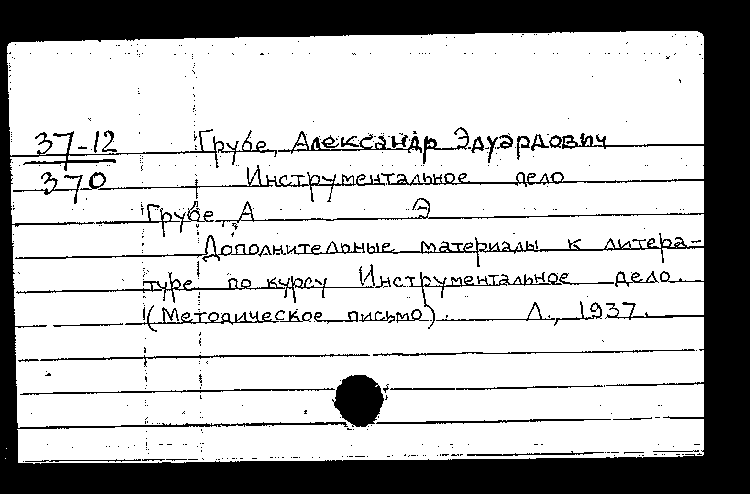 37-12 Грубе, Александр Эдуардович
370 Инструментальное дело
Грубе, А Э
Дополнительные материалы к литера-
туре по курсу Инструментальное дело.
(Методическое письмо). Л., 1937.